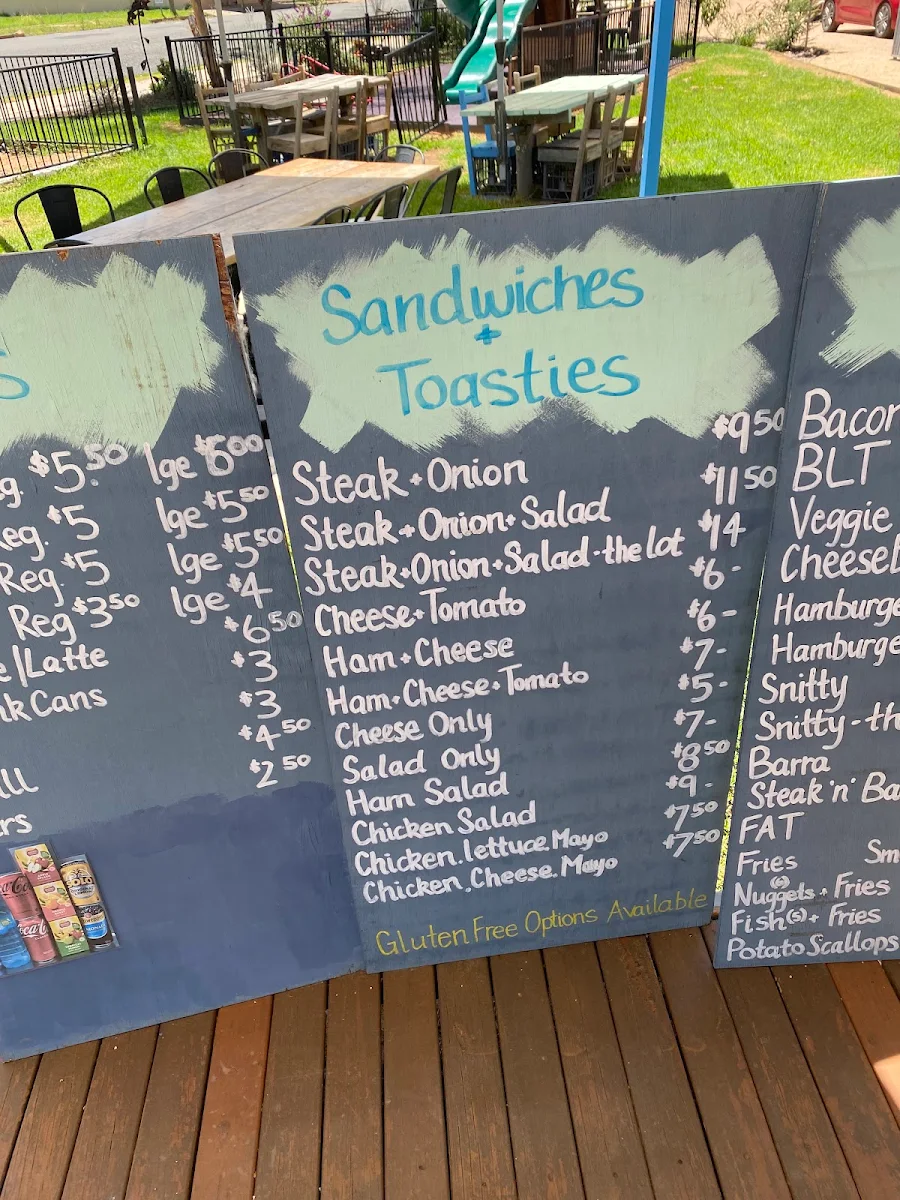 s
g. $5.50 lge $6.00
eg. $5 lge $5.50
Reg. $5 lge $5.50
Reg $3.50 lge $4
e/Latte $6.50
nk Cans $3
$3
ll $4.50
rs $2.50
Sandwiches
+
Toasties
Steak + Onion $9.50
Steak + Onion + Salad $11.50
Steak + Onion + Salad - the lot $14
Cheese + Tomato $6-
Ham + Cheese $6-
Ham + Cheese + Tomato $7-
Cheese Only $5-
Salad Only $7-
Ham Salad $8.50
Chicken Salad $9-
Chicken. lettuce Mayo $7.50
Chicken. Cheese. Mayo $7.50
Gluten Free Options Available
Bacon
BLT
Veggie
Cheese
Hamburge
Hamburge
Snitty
Snitty - th
Barra
Steak 'n' Ba
FAT
Fries Sm
Nuggets (6) + Fries
Fish(s) + Fries
Potato Scallops